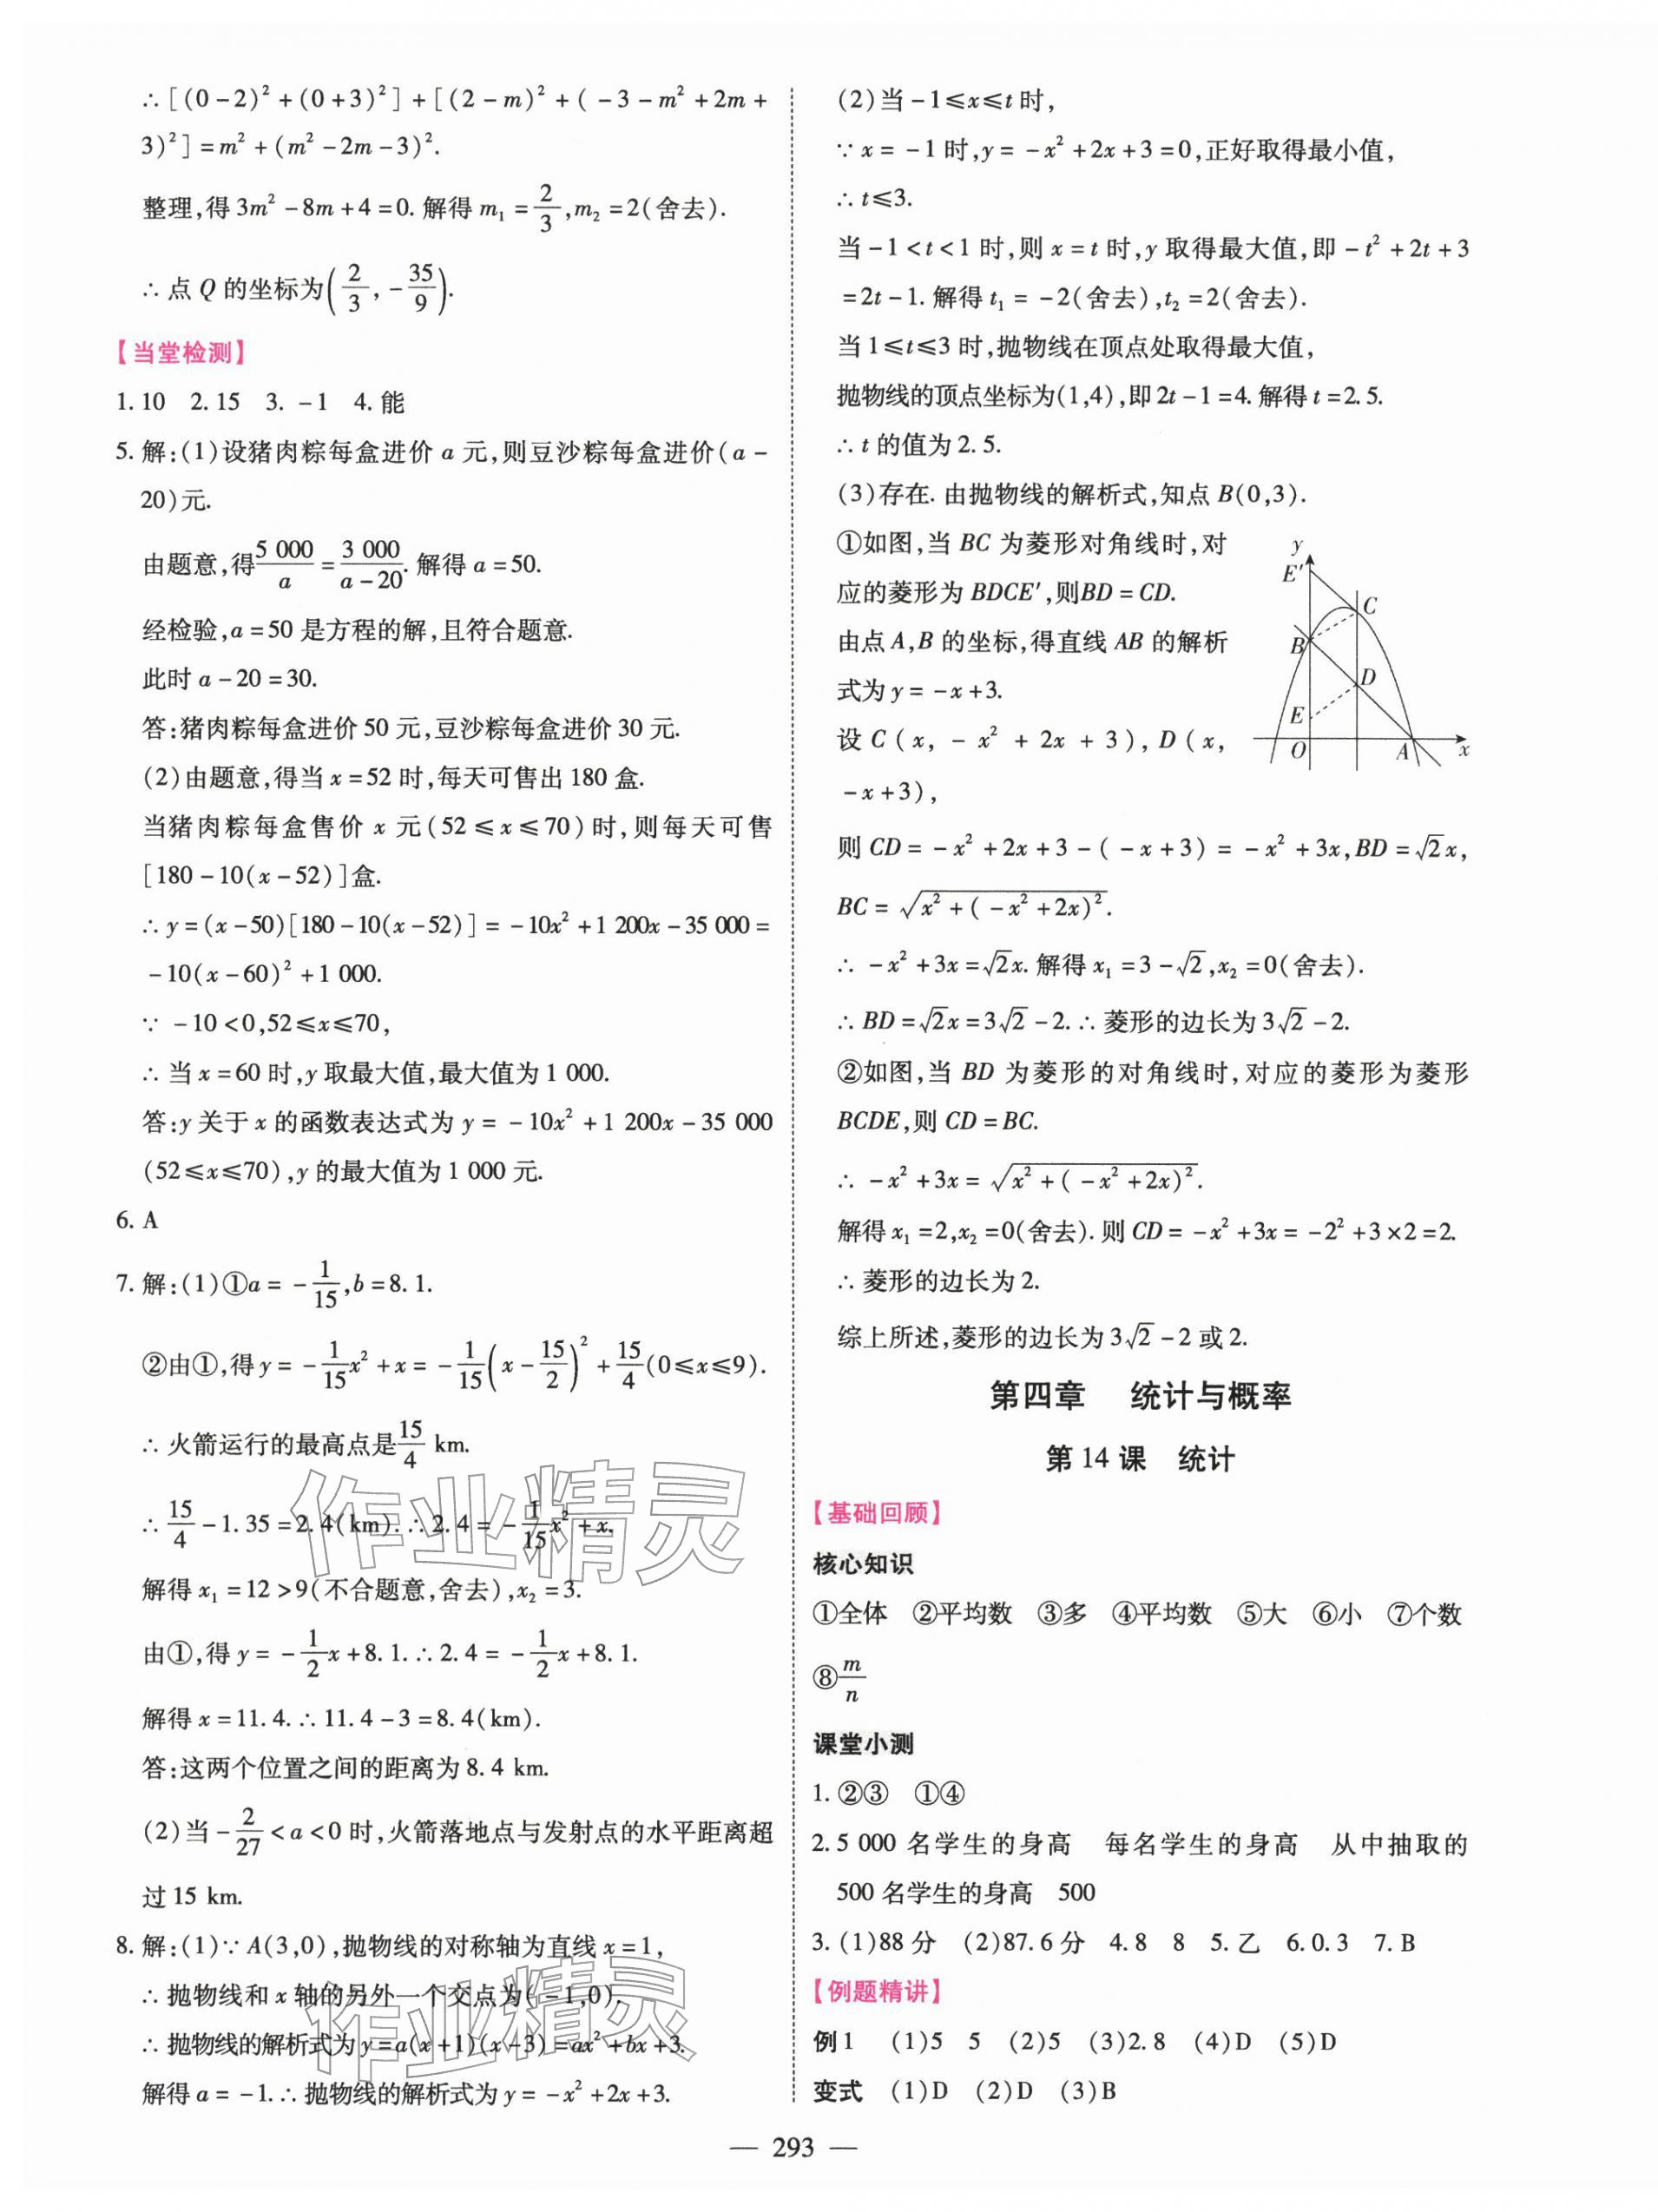 ∴ [(0-2)²+(0+3)²]+[(2-m)²+(-3-m²+2m+
3)²]=m²+(m²-2m-3)².
整理,得 3m²-8m+4=0. 解得 m₁=2/3,m₂=2(舍去).
∴ 点 Q 的坐标为(2/3,-35/9).
【当堂检测】
1. 10 2. 15 3. -1 4. 能
5. 解:(1)设猪肉粽每盒进价 a 元,则豆沙粽每盒进价(a-
20)元.
由题意,得5 000/a=3 000/(a-20). 解得 a=50.
经检验,a=50 是方程的解,且符合题意.
此时 a-20=30.
答:猪肉粽每盒进价 50 元,豆沙粽每盒进价 30 元.
(2)由题意,得当 x=52 时,每天可售出 180 盒.
当猪肉粽每盒售价 x 元(52≤x≤70)时,则每天可售
[180-10(x-52)]盒.
∴ y=(x-50)[180-10(x-52)]=-10x²+1 200x-35 000=
-10(x-60)²+1 000.
∵ -10<0,52≤x≤70,
∴ 当 x=60 时,y 取最大值,最大值为 1 000.
答:y 关于 x 的函数表达式为 y=-10x²+1 200x-35 000
(52≤x≤70),y 的最大值为 1 000 元.
6. A
7. 解:(1)①a=-1/15,b=8.1.
②由①,得 y=-1/15x²+x=-1/15(x-15/2)²+15/4(0≤x≤9).
∴ 火箭运行的最高点是15/4 km.
∴ 15/4-1.35=2.4(km). ∴ 2.4=-1/15x²+x.
解得 x₁=12>9(不合题意,舍去),x₂=3.
由①,得 y=-1/2x+8.1. ∴ 2.4=-1/2x+8.1.
解得 x=11.4. ∴ 11.4-3=8.4(km).
答:这两个位置之间的距离为 8.4 km.
(2)当-2/27<a<0 时,火箭落地点与发射点的水平距离超
过 15 km.
8. 解:(1)∵ A(3,0),抛物线的对称轴为直线 x=1,
∴ 抛物线和 x 轴的另外一个交点为(-1,0).
∴ 抛物线的解析式为 y=a(x+1)(x-3)=ax²+bx+3.
解得 a=-1. ∴ 抛物线的解析式为 y=-x²+2x+3.
(2)当-1≤x≤t 时,
∵ x=-1 时,y=-x²+2x+3=0,正好取得最小值,
∴ t≤3.
当-1<t<1 时,则 x=t 时,y 取得最大值,即-t²+2t+3
=2t-1. 解得 t₁=-2(舍去),t₂=2(舍去).
当 1≤t≤3 时,抛物线在顶点处取得最大值,
抛物线的顶点坐标为(1,4),即 2t-1=4. 解得 t=2.5.
∴ t 的值为 2.5.
(3)存在. 由抛物线的解析式,知点 B(0,3).
①如图,当 BC 为菱形对角线时,对
应的菱形为 BDCE′,则BD=CD.
由点 A,B 的坐标,得直线 AB 的解析
式为 y=-x+3.
设 C(x,-x²+2x+3),D(x,
-x+3),
y
E′
C
B
D
E
O
A
x
则 CD=-x²+2x+3-(-x+3)=-x²+3x,BD=√2x,
BC=√(x²+(-x²+2x)²).
∴ -x²+3x=√2x. 解得 x₁=3-√2,x₂=0(舍去).
∴ BD=√2x=3√2-2. ∴ 菱形的边长为 3√2-2.
②如图,当 BD 为菱形的对角线时,对应的菱形为菱形
BCDE,则 CD=BC.
∴ -x²+3x=√(x²+(-x²+2x)²).
解得 x₁=2,x₂=0(舍去). 则 CD=-x²+3x=-2²+3×2=2.
∴ 菱形的边长为 2.
综上所述,菱形的边长为 3√2-2 或 2.
第四章 统计与概率
第 14 课 统计
【基础回顾】
核心知识
①全体 ②平均数 ③多 ④平均数 ⑤大 ⑥小 ⑦个数
⑧m/n
课堂小测
1. ②③ ①④
2. 5 000 名学生的身高 每名学生的身高 从中抽取的
500 名学生的身高 500
3. (1)88 分 (2)87.6 分 4. 8 8 5. 乙 6. 0.3 7. B
【例题精讲】
例 1 (1)5 5 (2)5 (3)2.8 (4)D (5)D
变式 (1)D (2)D (3)B
— 293 —
作业精灵
作业精灵